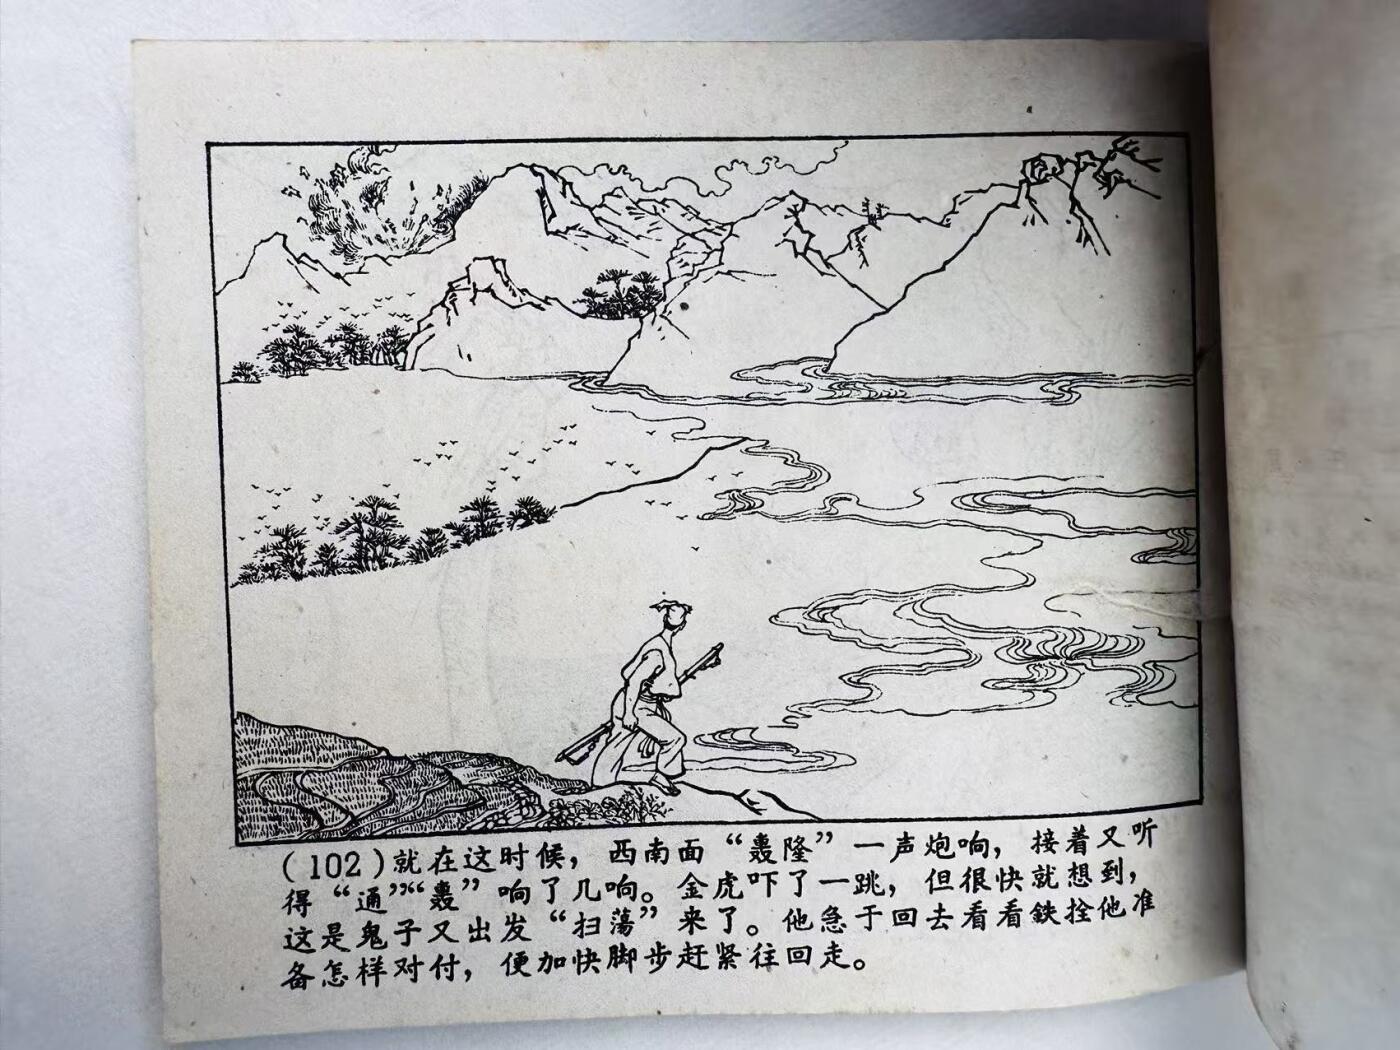 (102)就在这时候，西南面“轰隆”一声炮响，接着又听
得“通”“轰”响了几响。金虎吓了一跳，但很快就想到，
这是鬼子又出发“扫荡”来了。他急于回去看看鉄拴他准
备怎样对付，便加快脚步赶紧往回走。